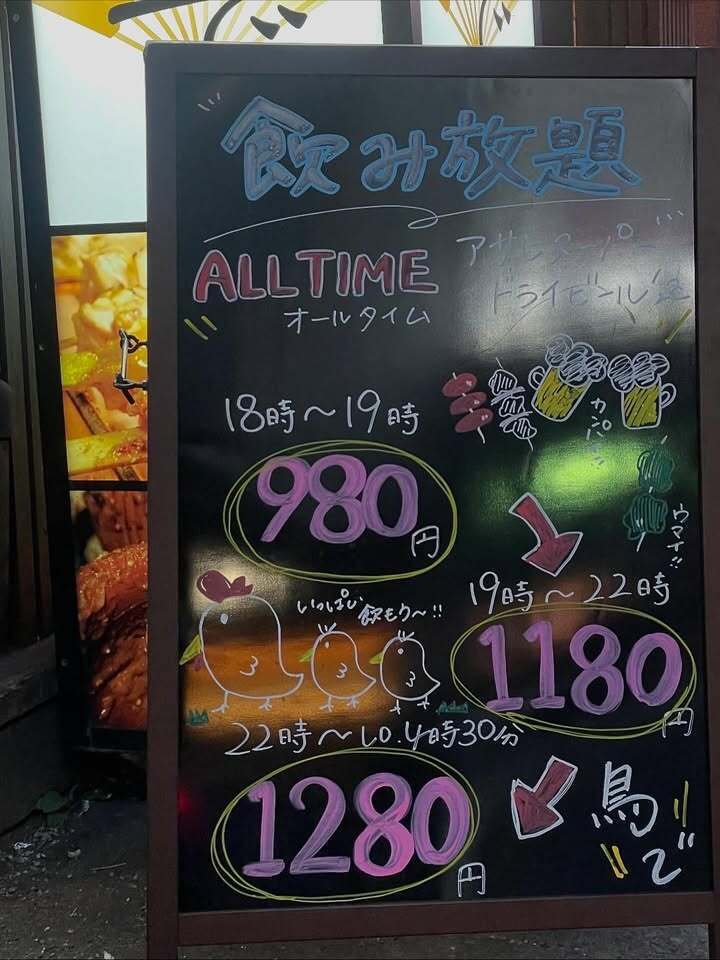 飲み放題
ALL TIME
オールタイム
アサヒスーパー
ドライビール
18時〜19時
カンパイ!!
980円
ウマイ!!
19時〜22時
いっぱい
飲もう〜!!
1180円
22時〜LO.4時30分
1280円
鳥